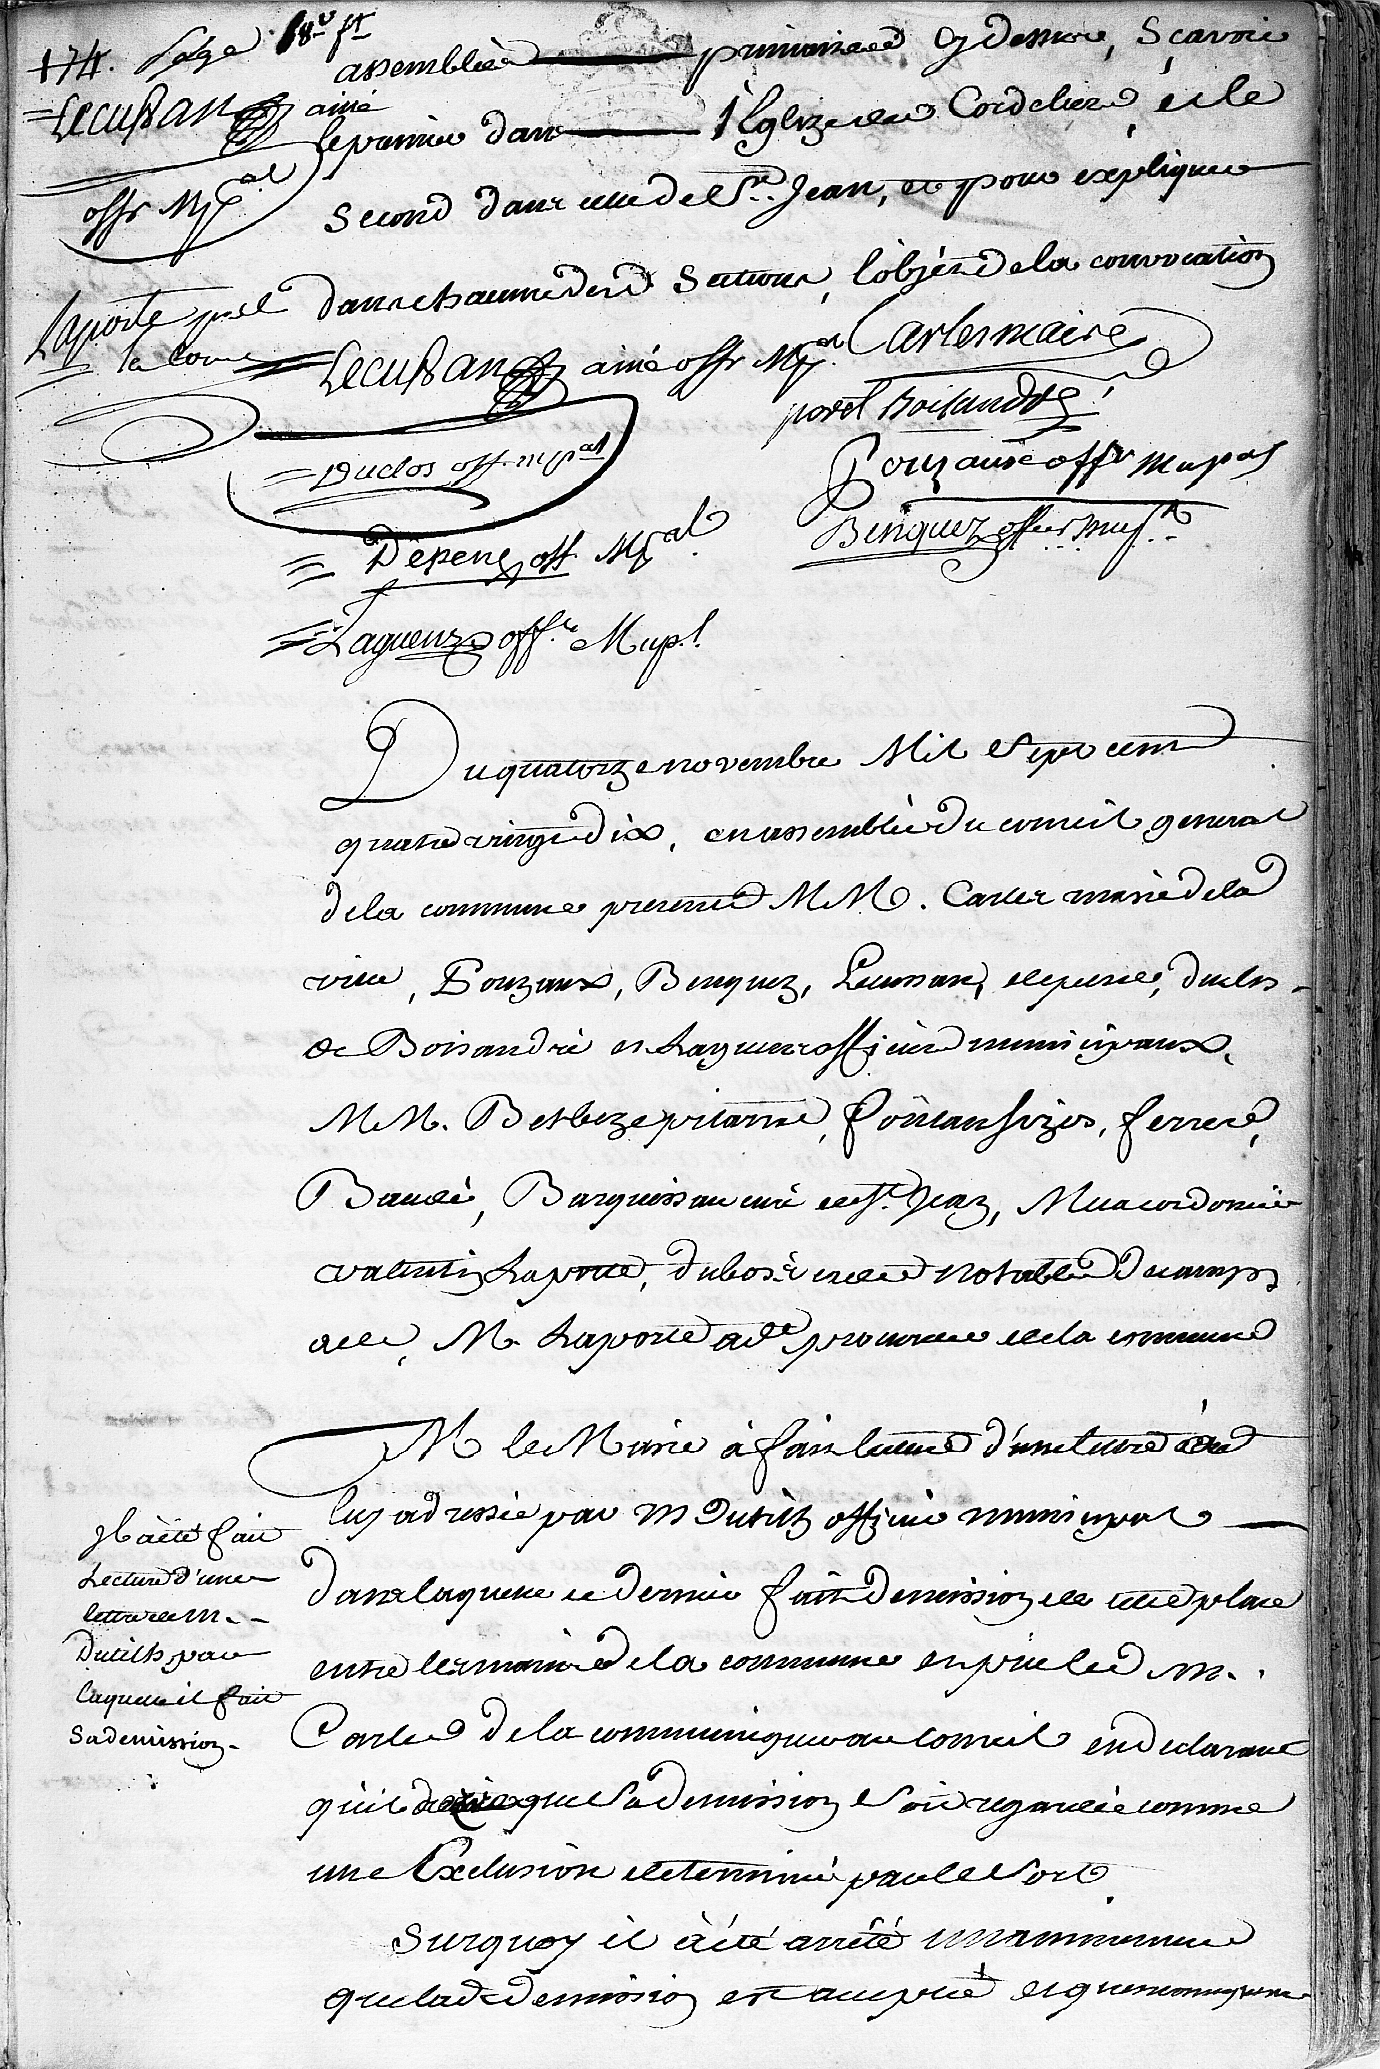 174. page 18e ft
assemblées primaires Cy dessus, Scavoir
Lecussan ainé
le premier dans l'Eglize des Cordeliers, et le
offr Mpal
Second dans celle de St. Jean, et pour expliquer
dans chacune desd Sections, l'objet de la convocation
Laporte pr de
la Comne
Lecussan ainé offr Mpal
Carles maire
porel Boisandré
Duclos off. mpal
Pouzaux offr mupal
Benquez offier mupl
Depene off Mpal
Laguens offer Mupl.
Du quatorze novembre Mil Sept cent
quatre vingt dix, en assemblée du conseil general
de la commune presents MM. Carles maire de la
ville, Pouzaux, Benquez, Lecussan, depene, duclos
de Boisandré et Laguens officiers municipaux.
MM. Berbeze pitarne, fontan forgos, ferrere,
Baudé, Barquissau curé de St. Jean, Mua cordonier
valentin Laporte, dubosc notables
M. Laporte ade procureur de la commune
M le Maire à fait lecture d'une lettre à
luy adressée par M Dutilh officier municipal
dans laquelle ce dernier fait demission de cette place
entre les mains de la commune et prie led M.
Carles de la communiquer au Conseil en declarant
qu'il desire que Sa demission Soit regardée comme
une Exclusion determinée par le Sort
Il à été fait
Lecture d'une
lettre de M.
Dutilh par
laquelle il fait
Sa demission.
Sur quoy il à été arrêté unanimement
que lad. demission est acceptée et que